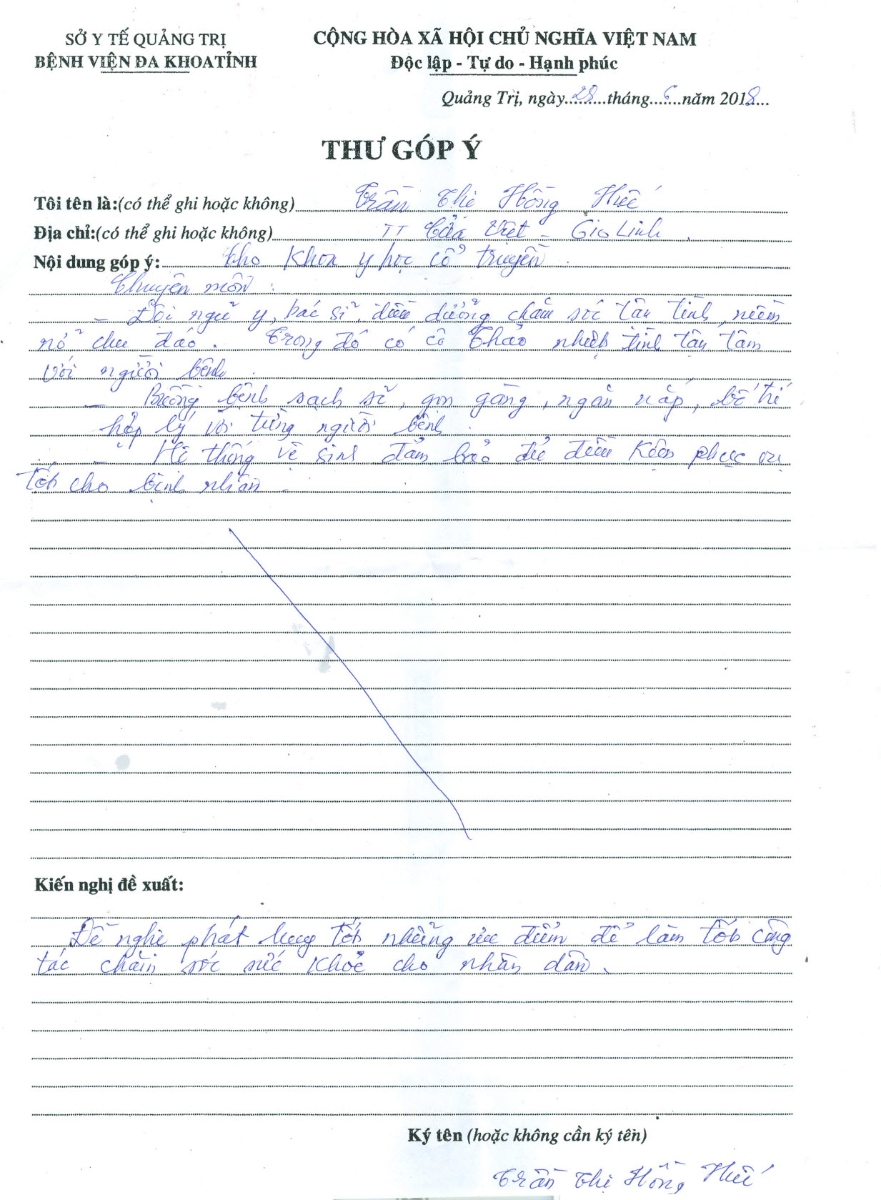 SỞ Y TẾ QUẢNG TRỊ
BỆNH VIỆN ĐA KHOA TỈNH
CỘNG HÒA XÃ HỘI CHỦ NGHĨA VIỆT NAM
Độc lập - Tự do - Hạnh phúc
Quảng Trị, ngày 28 tháng 6 năm 2018
THƯ GÓP Ý
Tôi tên là:(có thể ghi hoặc không) Trần Thị Hồng
Địa chỉ:(có thể ghi hoặc không) TT Cửa Việt - Gio Linh.
Nội dung góp ý: Cho Khoa y học cổ truyền
Chuyên môn:
- Đội ngũ y, bác sĩ, điều dưỡng chăm sóc tận tình, niềm
nở chu đáo. Trong đó có cô Thảo nhiệt tình tận tâm
với người bệnh.
- Buồng bệnh sạch sẽ, gọn gàng, ngăn nắp, bố trí
hợp lý với từng người bệnh.
- Hệ thống vệ sinh đảm bảo đủ điều kiện phục vụ
tốt cho bệnh nhân.
Kiến nghị đề xuất:
Đề nghị phát huy tốt những ưu điểm để làm tốt công
tác chăm sóc sức khoẻ cho nhân dân.
Ký tên (hoặc không cần ký tên)
Trần Thị Hồng